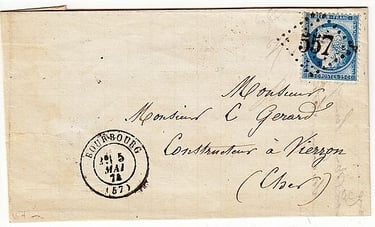 567
POSTES 25 C
Monsieur
Monsieur C Gerard
Constructeur à Vierzon
(Cher)
BOURBOURG
5
MAI
74
(57)